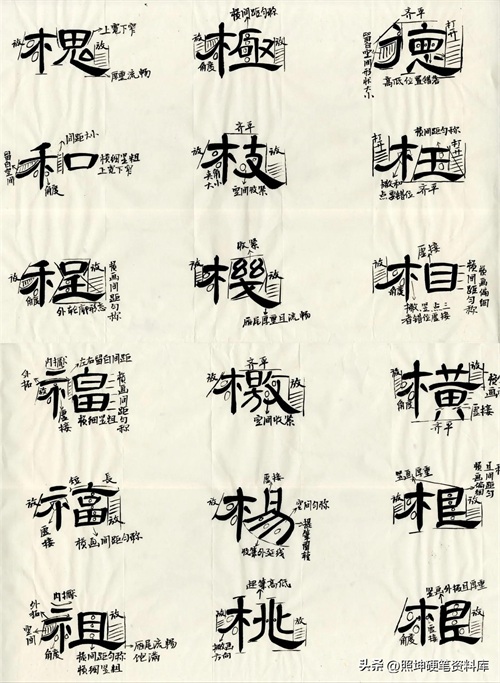 槐
放
上宽下窄
放
厚重流畅
極
横间距匀称
放
放
角度
德
齐平
打开
留白空间形状大小
高低位置错落
和
间距大小
留白空间
角度
横细竖粗
上宽下窄
枝
齐平
放
夹角大小
空间收紧
枉
打开
横间距匀称
打开
撇和点要错位
齐平
程
放
放
角度
外轮廓形态
横画间距匀称
機
收紧
放
放
雁尾厚重且流畅
相
虚接
放
角度
撇竖点三者错位虚接
横间距匀称
横画偏细
福
内擫
左右留白间距
外拓
虚接
横细竖粗
横画间距匀称
檄
齐平
放
放
角度
空间收紧
横
放
放
角度
虚接
齐平
福
短
長
放
放
虚接
横画间距匀称
楊
虚接
放
空间匀称
收笔外延线
根
竖画厚重
放
放
角度
横画偏细
且间距匀
祖
内擫
外拓
空间
放
角度
横间距匀称
横细竖粗
雁尾流畅饱满
桃
起笔高低
放
放
撇画方向
根
竖画外拓且厚重
放
角度
虚接
头条 @照坤硬笔资料库